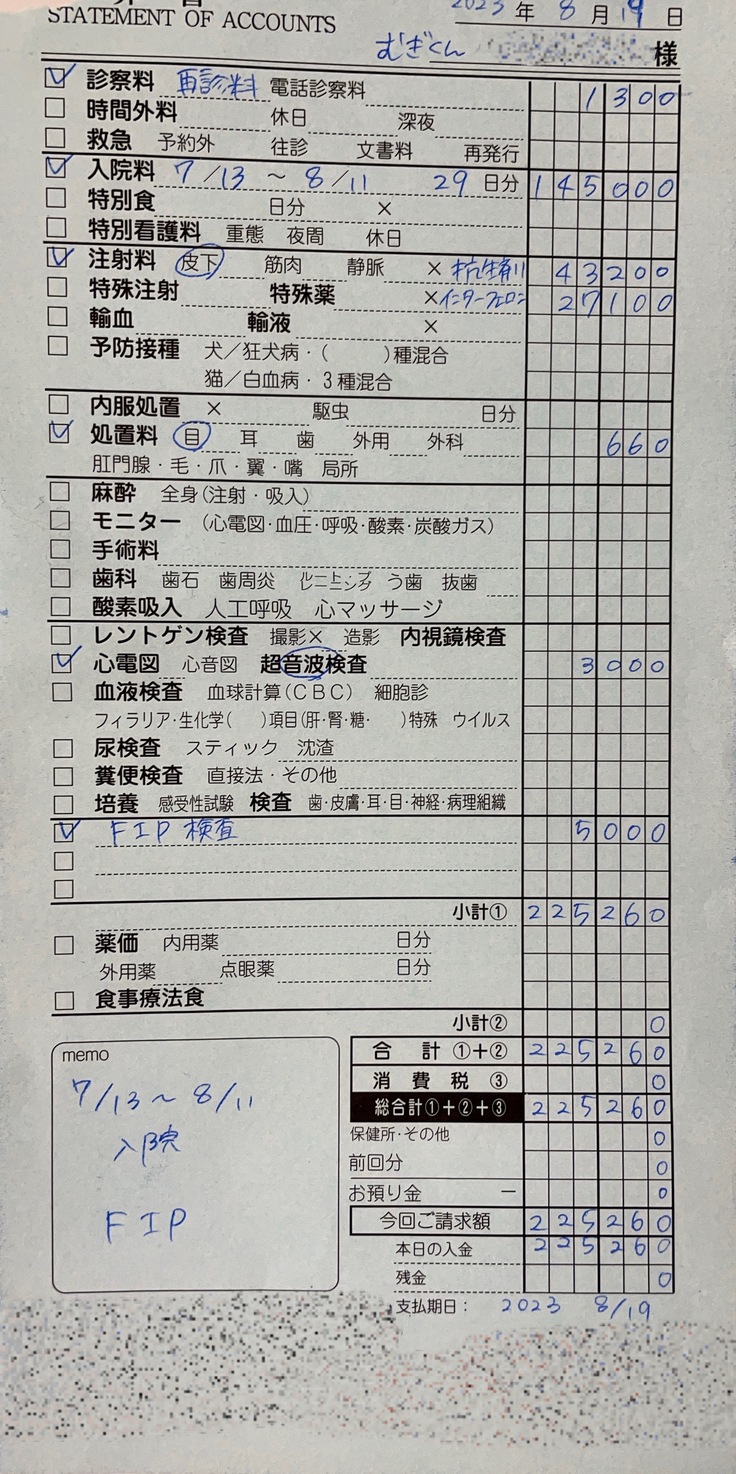 STATEMENT OF ACCOUNTS
2023 年 8 月 19 日
むぎくん 様
診察料 再診料 電話診察料 1300
時間外料 休日 深夜
救急 予約外 往診 文書料 再発行
入院料 7/13 ~ 8/11 29 日分 145000
特別食 日分 ×
特別看護料 重態 夜間 休日
注射料 皮下 筋肉 静脈 × 抗生剤 43200
特殊注射 特殊薬 ×インターフェロン 27100
輸血 輸液 ×
予防接種 犬/狂犬病・( )種混合
猫/白血病・3種混合
内服処置 × 駆虫 日分
処置料 目 耳 歯 外用 外科 660
肛門腺・毛・爪・翼・嘴 局所
麻酔 全身(注射・吸入)
モニター (心電図・血圧・呼吸・酸素・炭酸ガス)
手術料
歯科 歯石 歯周炎 ルートプレーニング う歯 抜歯
酸素吸入 人工呼吸 心マッサージ
レントゲン検査 撮影× 造影 内視鏡検査
心電図 心音図 超音波検査 3000
血液検査 血球計算(CBC) 細胞診
フィラリア・生化学( )項目(肝・腎・糖・ )特殊 ウイルス
尿検査 スティック 沈渣
糞便検査 直接法・その他
培養 感受性試験 検査 歯・皮膚・耳・目・神経・病理組織
FIP 検査 5000
小計① 225260
薬価 内用薬 日分
外用薬 点眼薬 日分
食事療法食
小計② 0
memo
7/13~8/11
入院
FIP
合計 ①+② 225260
消費税 ③ 0
総合計①+②+③ 225260
保健所・その他 0
前回分 0
お預り金 ー 0
今回ご請求額 225260
本日の入金 225260
残金 0
支払期日: 2023 8/19